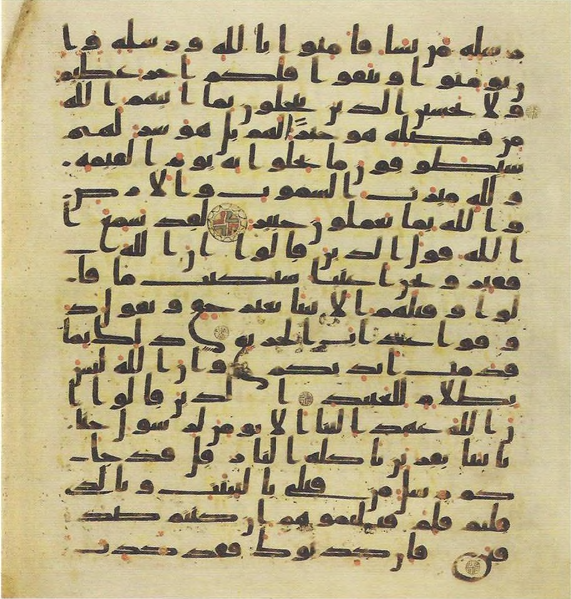 رسله من يشا فامنوا بالله ورسله وا
ن تومنوا وتتقوا فلكم اجر عظيم
ولا يحسبن الذين يبخلون بما اتيهم الله
من فضله هو خيرا لهم بل هو شر لهم
سيطوقون ما بخلوا به يوم القيمه
ولله ميرث السموت والارض
والله بما تعملون خبير لقد سمع ا
لله قول الذين قالوا ان الله
فقير ونحن اغنيا سنكتب ما قا
لوا وقتلهم الانبيا بغير حق ونقول ذ
وقوا عذاب الحريق ذلك بما
قدمت ايديكم وان الله ليس
بظلام للعبيد الذين قالوا ا
ن الله عهد الينا الا نومن لرسول حتى
ياتينا بقربن تاكله النار قل قد جا
كم رسل من قبلي بالبينت وبالذي
قلتم فلم قتلتموهم ان كنتم صد
قين فان كذبوك فقد كذب